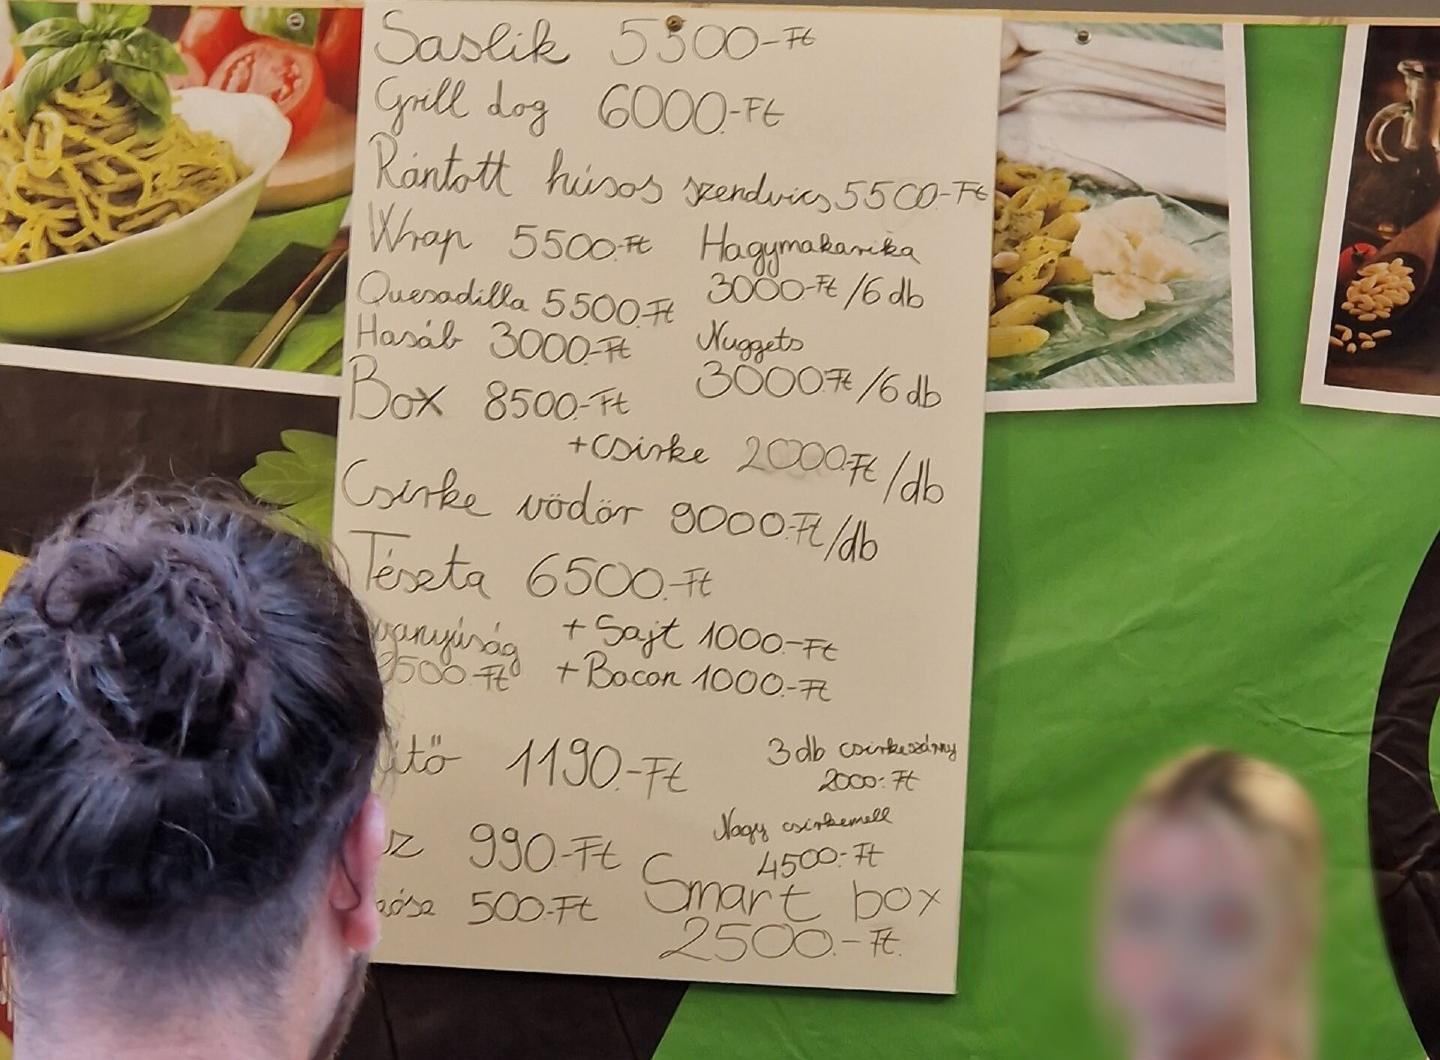 Saslik 5500-Ft
Grill dog 6000.-Ft
Rántott húsos szendvics 5500.-Ft
Wrap 5500.-Ft
Hagymakarika
3000-Ft/6 db
Quesadilla 5500.-Ft
Hasáb 3000.-Ft
Nuggets
3000 Ft/6 db
Box 8500.-Ft
+csirke 2000.-Ft/db
Csirke vödör 9000.-Ft/db
Tészta 6500.-Ft
vanyúság
+ Sajt 1000.-Ft
500.-Ft
+ Bacon 1000.-Ft
ítő 1190.-Ft
3 db csirkeszárny
2000.-Ft
Nagy csirkemell
4500.-Ft
z 990.-Ft
500.-Ft
Smart box
2500.-Ft.